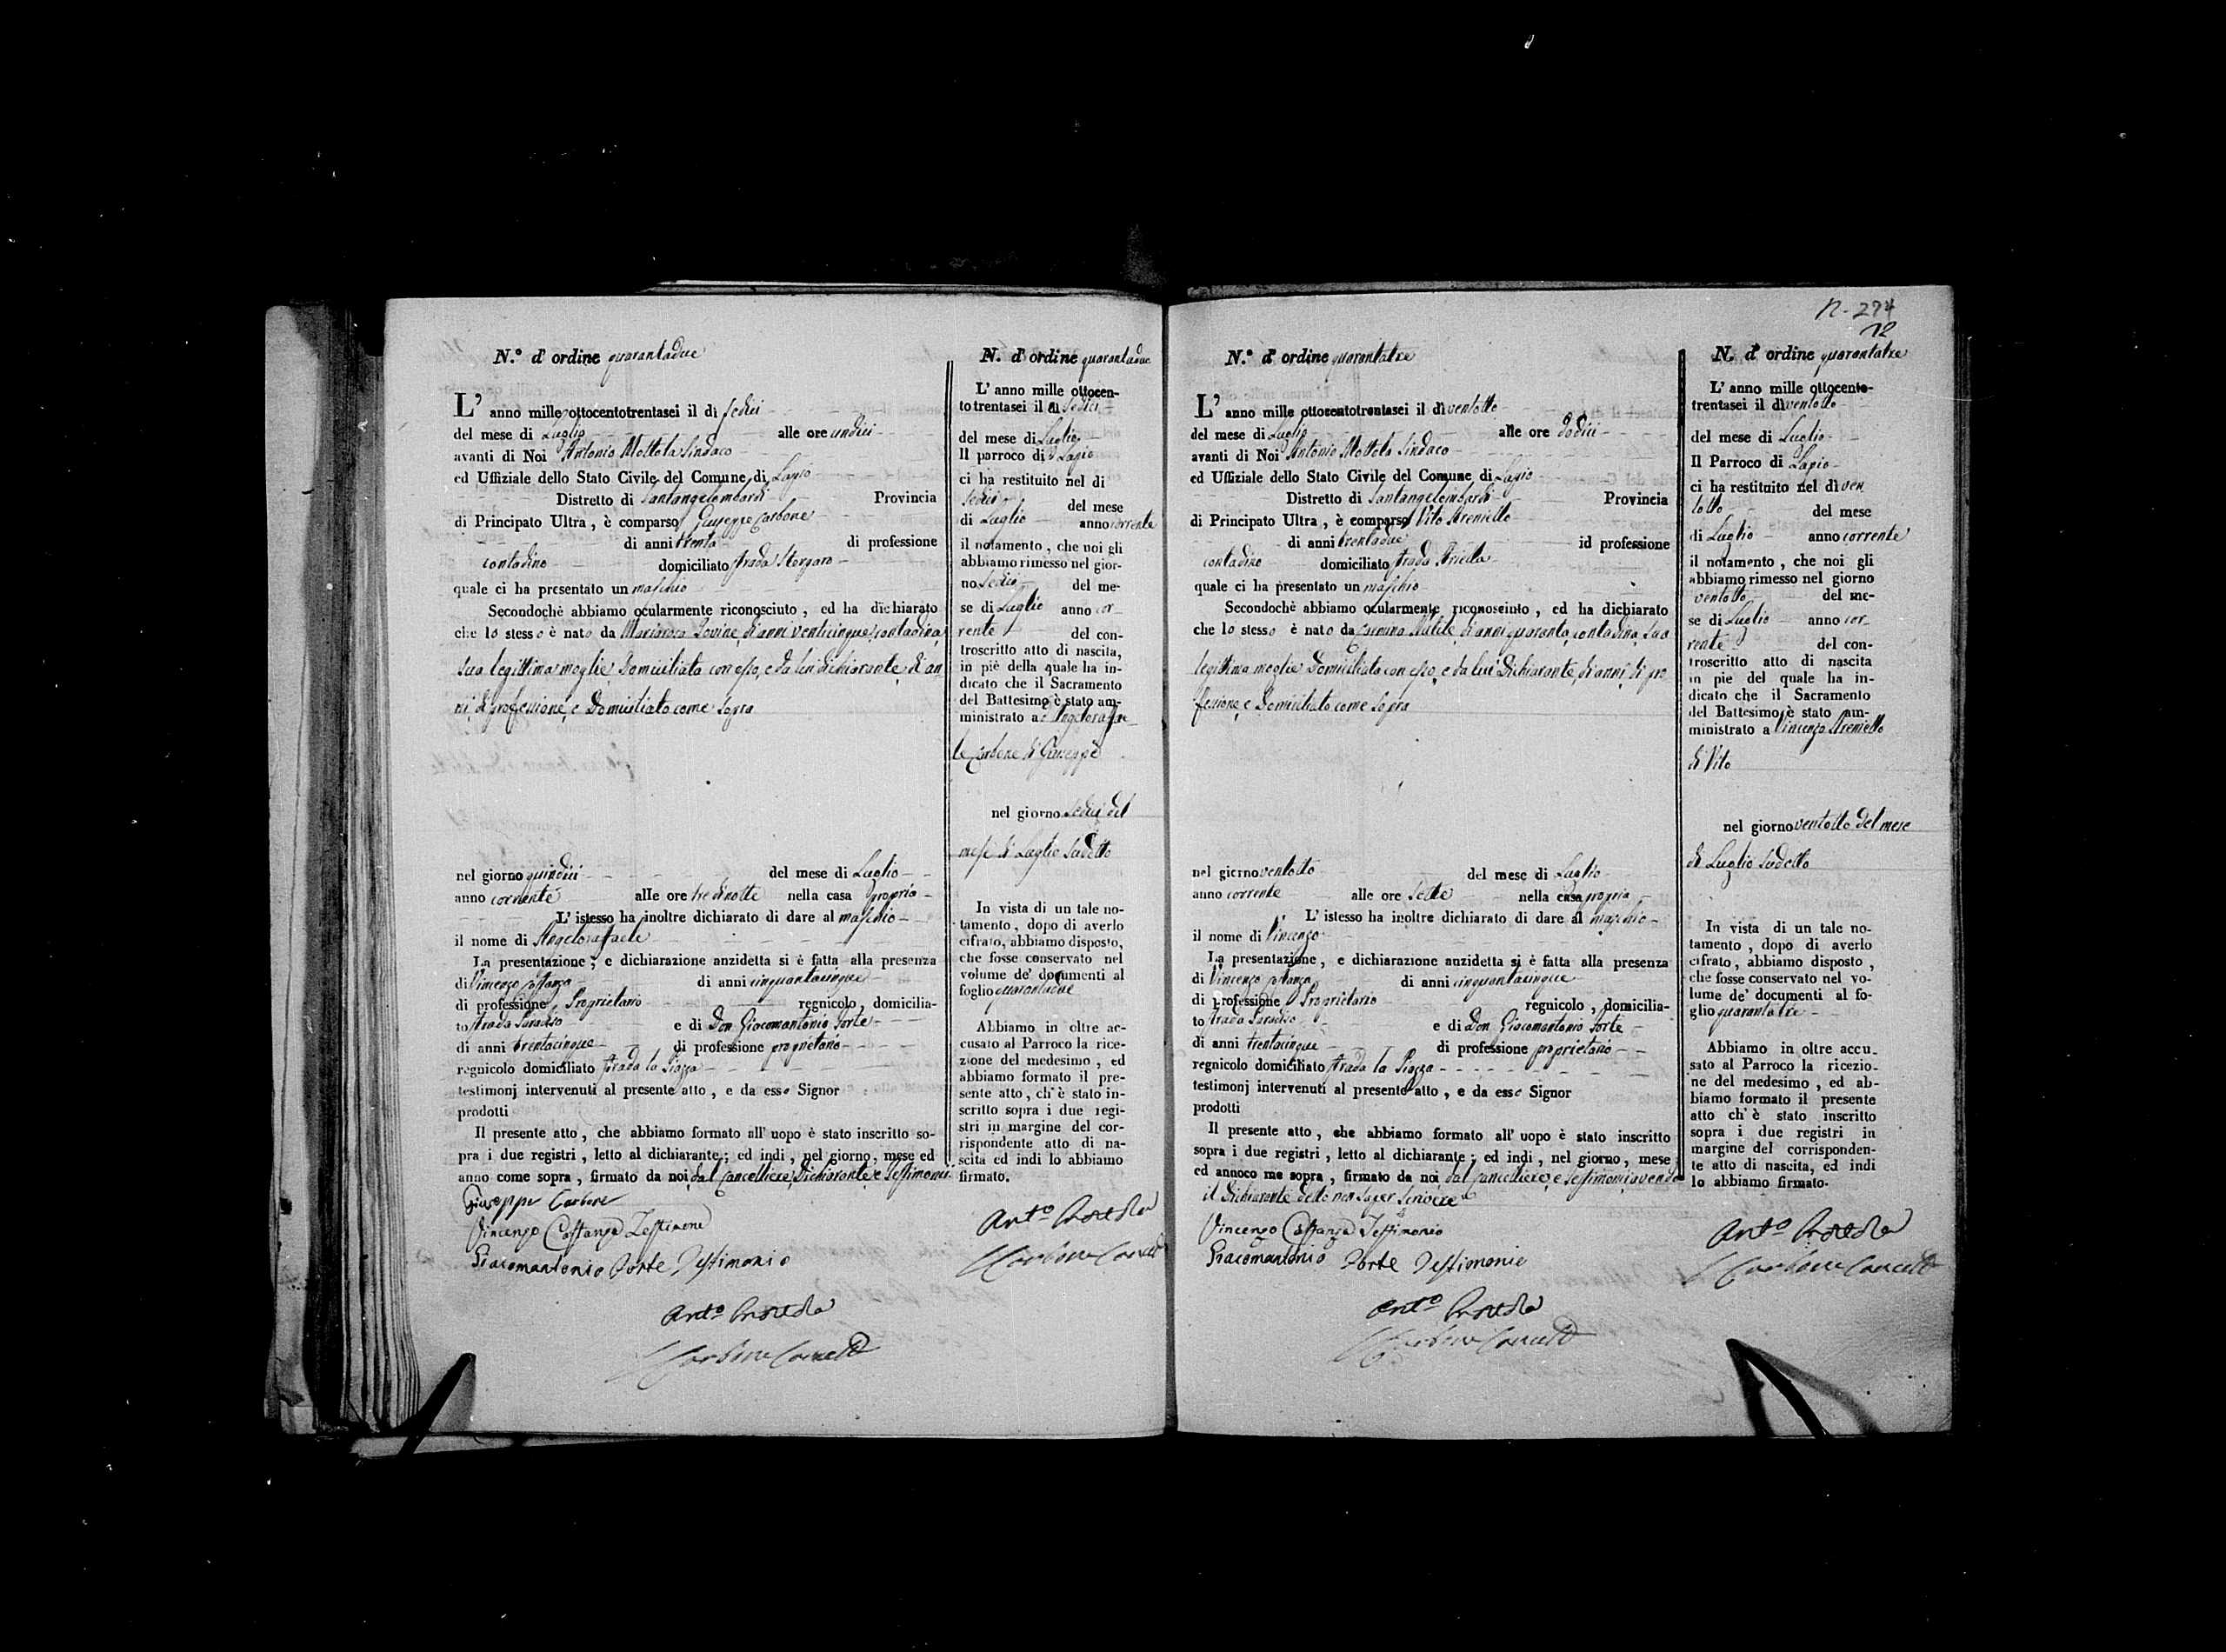 N.º d'ordine quarantadue
L'anno mille ottocentotrentasei il dì sedici
del mese di Luglio alle ore undici
avanti di Noi Antonio Mottola Sindaco
ed Uffiziale dello Stato Civile del Comune di Lapio
Distretto di Santangelombardi Provincia
di Principato Ultra, è comparso Giuseppe Carbone
di anni trenta di professione
contadino domiciliato strada
quale ci ha presentato un maschio
Secondochè abbiamo ocularmente riconosciuto, ed ha dichiarato
che lo stesso è nato da Mariarosa Iovine di anni venticinque contadina
sua legittima moglie Domiciliata con esso, e da lui dichiarante, di an
ni, di professione, e Domiciliato come sopra
nel giorno quindici del mese di Luglio
anno corrente alle ore tre di notte nella casa propria
L'istesso ha inoltre dichiarato di dare al maschio
il nome di Angelorafaele
La presentazione, e dichiarazione anzidetta si è fatta alla presenza
di Vincenzo Costanza di anni cinquantacinque
di professione Proprietario regnicolo, domicilia-
to strada Paradiso e di Don Giacomantonio Forte
di anni trentacinque di professione proprietario
regnicolo domiciliato strada la Piazza
testimonj intervenuti al presente atto, e da esso Signor
prodotti
Il presente atto, che abbiamo formato all'uopo è stato inscritto so-
pra i due registri, letto al dichiarante; ed indi, nel giorno, mese ed
anno come sopra, firmato da noi, dal Cancelliere, Dichiarante, e Testimonii
Giuseppe Carbone
Vincenzo Costanza Testimone
Giacomantonio Forte Testimonio
Ant.º Mottola
Carbone Cancell
N. d'ordine quarantadue
L'anno mille ottocen-
to trentasei il dì sedici
del mese di Luglio
Il parroco di Lapio
ci ha restituito nel di
sedici del mese
di Luglio anno corrente
il notamento, che noi gli
abbiamo rimesso nel gior-
no sedici del me-
se di Luglio anno cor-
rente del con-
troscritto atto di nascita,
in piè della quale ha in-
dicato che il Sacramento
del Battesimo è stato am-
ministrato a Angelorafae-
le Carbone di Giuseppe
nel giorno sedici del
mese di Luglio sudetto
In vista di un tale no-
tamento, dopo di averlo
cifrato, abbiamo disposto,
che fosse conservato nel
volume de' documenti al
foglio quarantadue
Abbiamo in oltre ac-
cusato al Parroco la rice-
zione del medesimo, ed
abbiamo formato il pre-
sente atto, ch'è stato in-
scritto sopra i due regi-
stri in margine del cor-
rispondente atto di na-
scita ed indi lo abbiamo
firmato.
Ant.º Mottola
Carbone Cancell
N. 274
12
N.º d'ordine quarantatre
L'anno mille ottocentotrentasei il dì ventotto
del mese di Luglio alle ore dodici
avanti di Noi Antonio Mottola Sindaco
ed Uffiziale dello Stato Civile del Comune di Lapio
Distretto di Santangelombardi Provincia
di Principato Ultra, è comparso Vito Areniello
di anni trentadue id professione
contadino domiciliato strada Ariella
quale ci ha presentato un maschio
Secondochè abbiamo ocularmente riconoseinto, ed ha dichiarato
che lo stesso è nato da Carmina di anni quaranta, contadina, sua
legittima moglie Domiciliata con esso, e da lui Dichiarante, di anni, di pro
fessione, e Domiciliato come sopra
nel giorno ventotto del mese di Luglio
anno corrente alle ore sette nella casa propria
L'istesso ha inoltre dichiarato di dare al maschio
il nome di Vincenzo
La presentazione, e dichiarazione anzidetta si è fatta alla presenza
di Vincenzo Costanza di anni cinquantacinque
di professione Proprietario regnicolo, domicilia-
to strada Paradiso e di Don Giacomantonio Forte
di anni trentacinque di professione proprietario
regnicolo domiciliato strada la Piazza
testimonj intervenuti al presente atto, e da esso Signor
prodotti
Il presente atto, che abbiamo formato all'uopo è stato inscritto
sopra i due registri, letto al dichiarante; ed indi, nel giorno, mese
ed annoco me sopra, firmato da noi, dal Cancelliere, e Testimonii avendo
il Dichiarante detto non saper scrivere
Vincenzo Costanza Testimonio
Giacomantonio Forte Testimonio
Ant.º Mottola
Carbone Cancell
N. d'ordine quarantatre
L'anno mille ottocento-
trentasei il dì ventotto
del mese di Luglio
Il Parroco di Lapio
ci ha restituito nel dì ven
totto del mese
di Luglio anno corrente
il notamento, che noi gli
abbiamo rimesso nel giorno
ventotto del me-
se di Luglio anno cor-
rente del con-
troscritto atto di nascita
in pie del quale ha in-
dicato che il Sacramento
del Battesimo è stato am-
ministrato a Vincenzo Areniello
di Vito
nel giorno ventotto del mese
di Luglio sudetto
In vista di un tale no-
tamento, dopo di averlo
cifrato, abbiamo disposto,
che fosse conservato nel vo-
lume de' documenti al fo-
glio quarantatre
Abbiamo in oltre accu-
sato al Parroco la ricezio-
ne del medesimo, ed ab-
biamo formato il presente
atto ch'è stato inscritto
sopra i due registri in
margine del corrisponden-
te atto di nascita, ed indi
lo abbiamo firmato.
Ant.º Mottola
Carbone Cancell